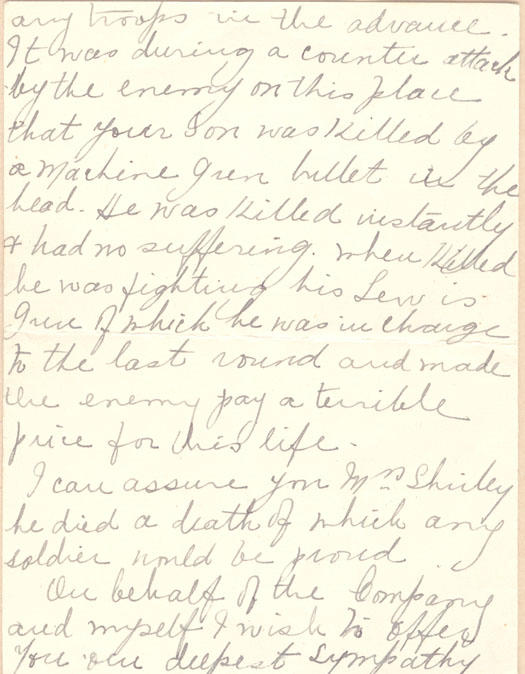 any troops in the advance.
It was during a counter attack
by the enemy on this place
that your Son was Killed by
a Machine Gun bullet in the
head. He was Killed instantly
& had no suffering. When Killed
he was fighting his Lewis
Gun of which he was in charge
to the last round and made
the enemy pay a terrible
price for his life.
I can assure you Mrs Shirley
he died a death of which any
soldier would be proud
On behalf of the Company
and myself I wish to offer
you our deepest sympathy